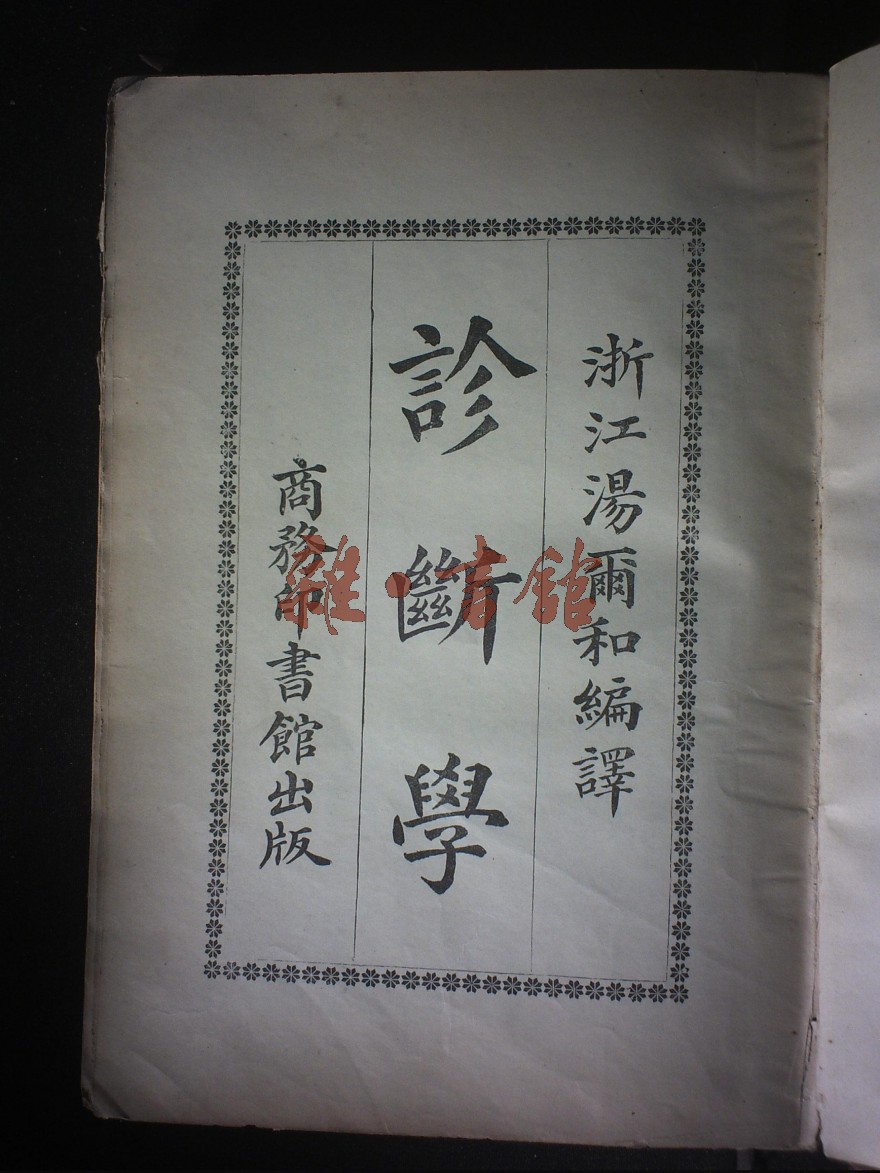 浙江湯爾和編譯
診斷學
商務印書館出版
雜·書館